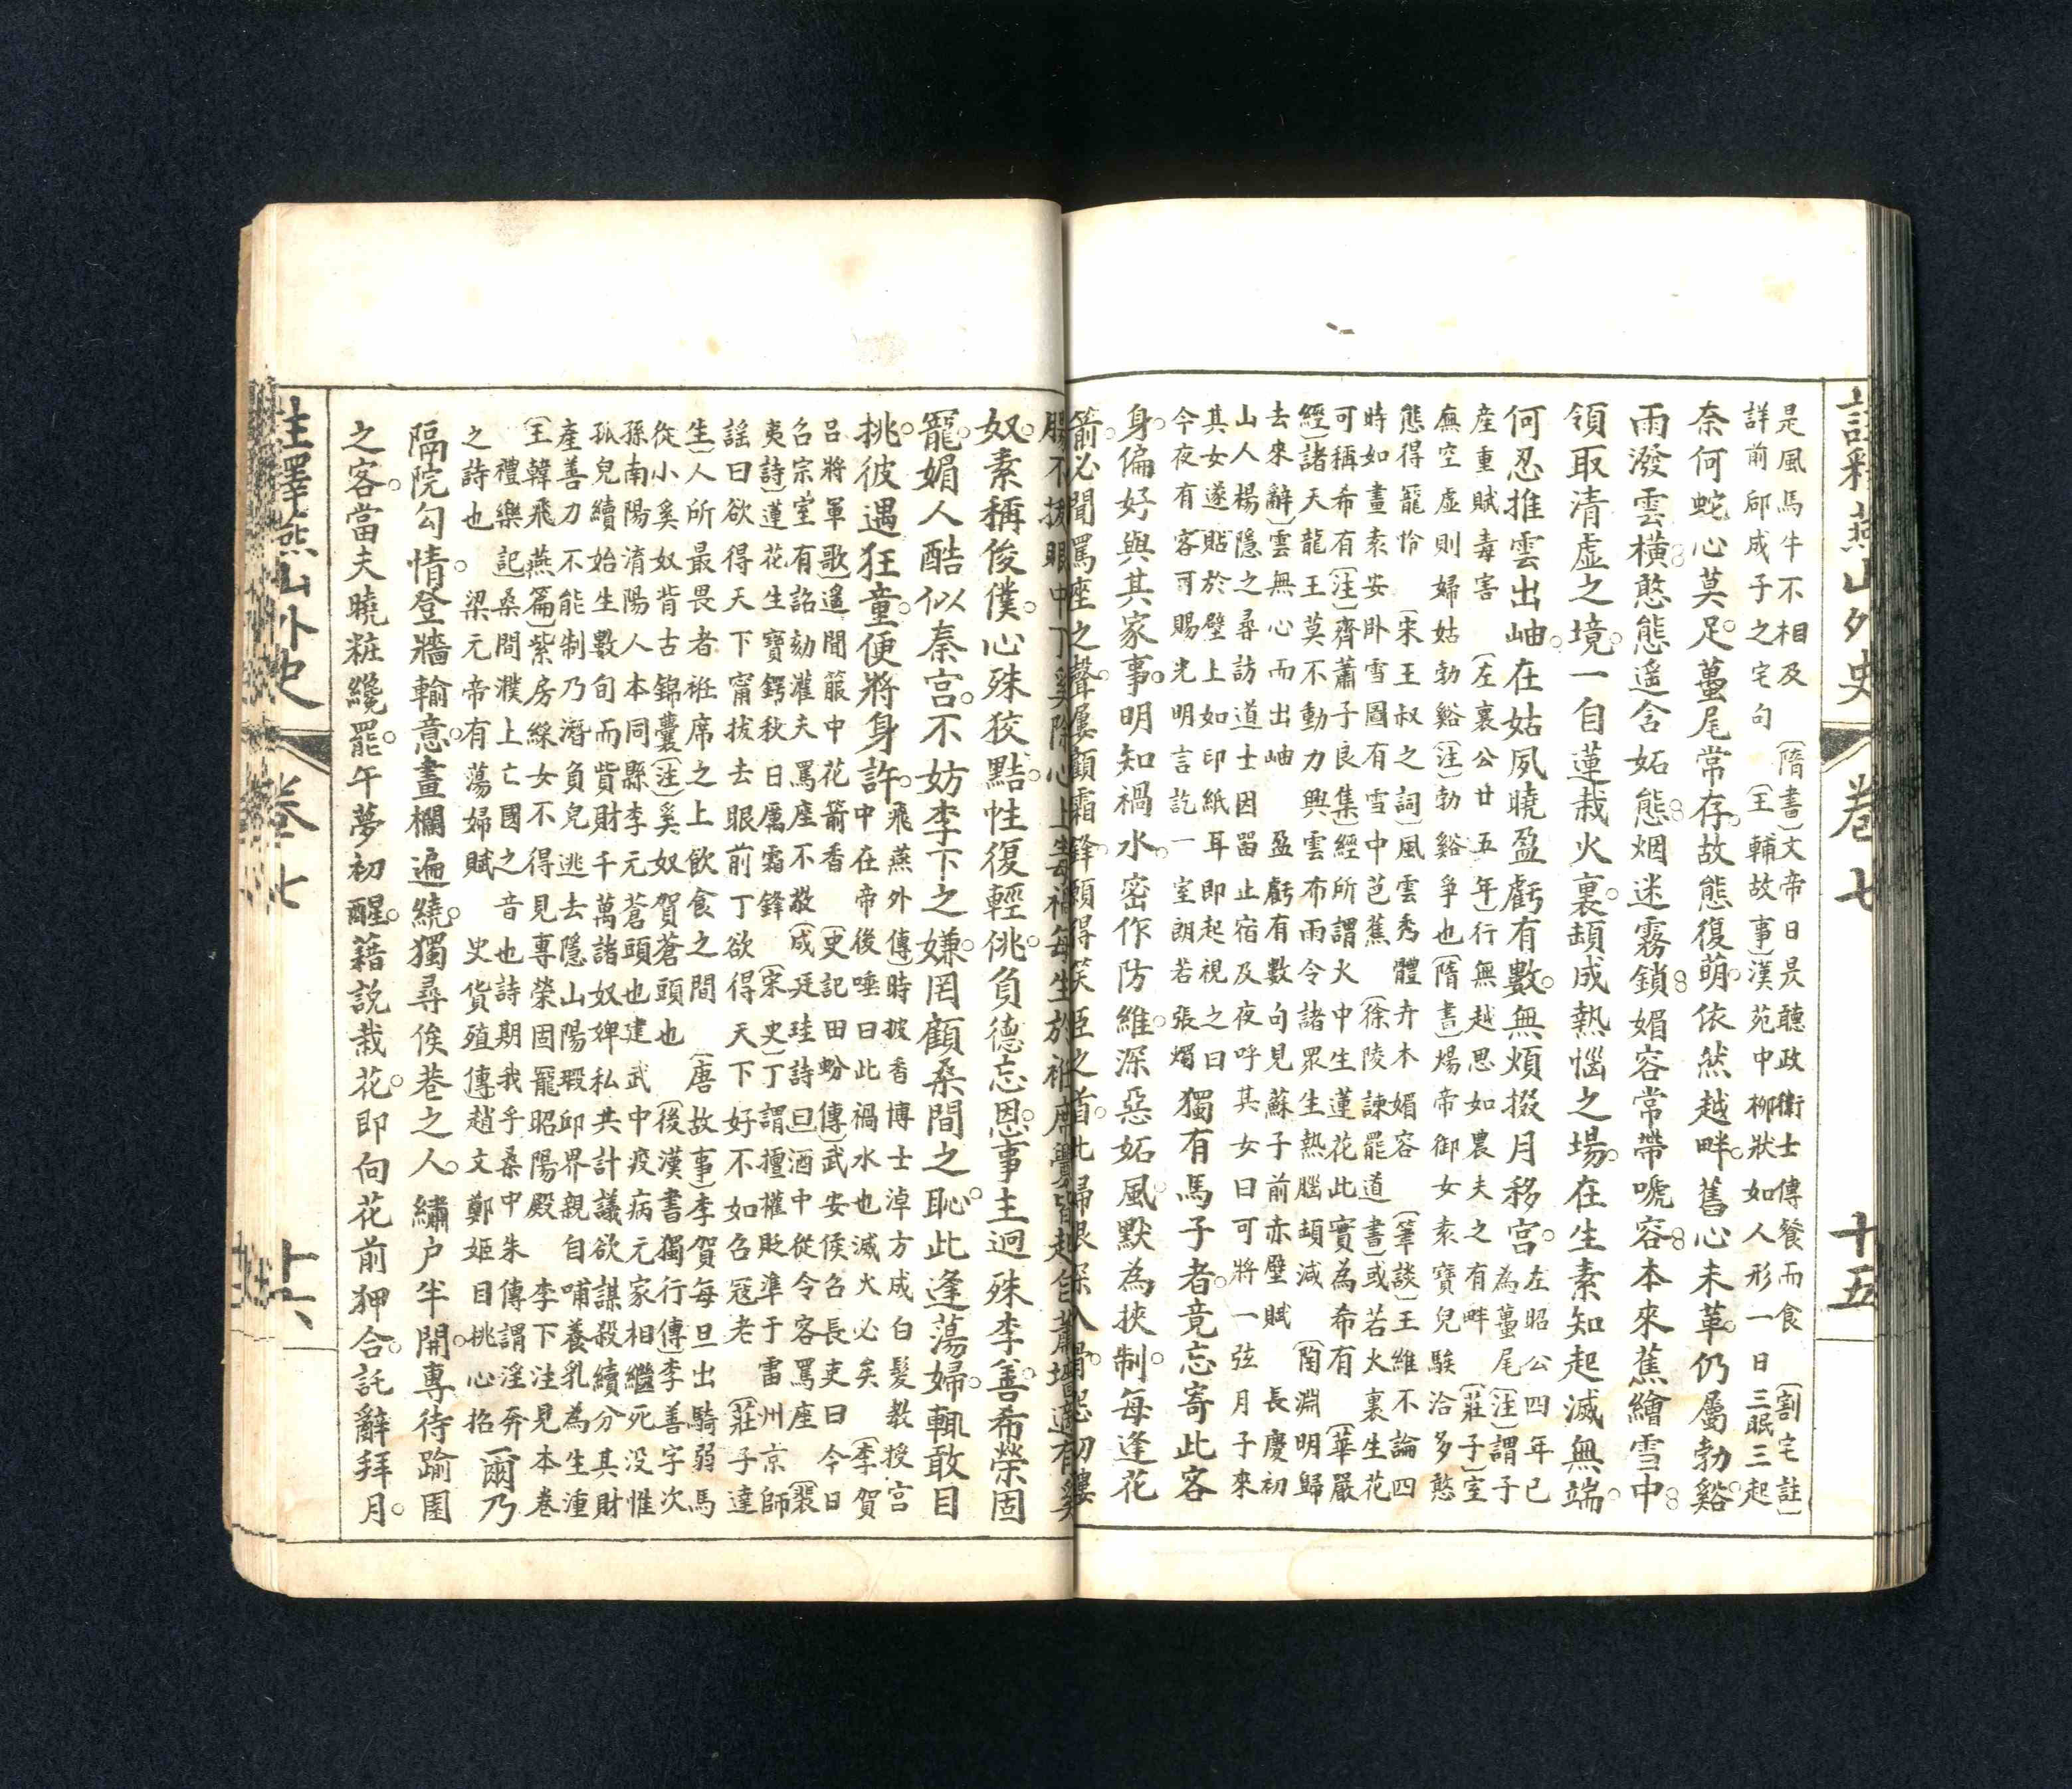 註釋燕山外史 卷七 十五
是風馬牛不相及 〔隋書〕文帝日昃聽政衛士傳餐而食 〔割宅註〕
詳前郈成子之宅句 〔王輔故事〕漢苑中柳狀如人形一日三眠三起
奈何蛇心莫足。蠆尾常存。故態復萌。依然越畔。舊心未革。仍屬勃谿。
雨潑雲橫。憨態遥含妬態。烟迷霧鎖。媚容常帶唬容。本來蕉繪雪中。
領取清虛之境。一自蓮栽火裏。頡成熱惱之場。在生素知起滅無端。
何忍推雲出岫。在姑夙曉盈虧有數。無煩掇月移宮。左昭公四年已
為蠆尾〔注〕謂子
產重賦毒害 〔左襄公廿五年〕行無越思如農夫之有畔 〔莊子〕室
無空虛則婦姑勃谿〔注〕勃谿爭也〔隋書〕煬帝御女袁寶兒騃洽多憨
態得寵怜 〔宋王叔之詞〕風雲秀體卉木媚容 〔筆談〕王維不論四
時如畫袁安卧雪圖有雪中芭蕉 〔徐陵諫罷道書〕或若火裏生花
可稱希有〔注〕齊蕭子良集經所謂火中生蓮花此實為希有 〔華嚴
經〕諸天龍王莫不動力興雲布雨令諸眾生熱腦頡滅 〔陶淵明歸
去來辭〕雲無心而出岫 盈虧有數句見蘇子前赤壁賦 長慶初
山人楊隱之尋訪道士因畱止宿及夜呼其女曰可將一弦月子來
其女遂貼於壁上如印紙耳即起視之曰
今夜有客可賜光明言訖一室朗若張燭 獨有馬子者。竟忘寄此客
身。偏好與其家事。明知禍水。密作防維。深惡妬風。默為挾制。每逢花
箭。必聞罵座之聲。屢顧霜鋒。頻得笑之首。此婦恨深入骨。怨初鏤
腸。不拔眼中丁。奚除心上毒。禍每生於衽席。釁皆起自蕭墻。適有奚
奴。素稱俊僕。心殊狡黠。性復輕佻。負德忘恩。事主迥殊李善。希榮固
寵。媚人酷似秦宮。不妨李下之嫌。罔顧桑間之恥。此逢蕩婦。輒敢目
挑。彼遇狂童。便將身許。飛燕外傳〕時披香博士淖方成白髮教授宮
中在帝後唾曰此禍水也滅火必矣 〔李賀
呂將軍歌〕遥聞箙中花箭香 〔史記田蚡傳〕武安侯召長吏曰今日
召宗室有詔劾灌夫罵座不敬 〔成廷珪詩〕曰酒中從令客罵座 〔裴
夷詩〕蓮花生寶鍔秋日厲霜鋒 〔宋史〕丁謂擅權貶準于雷州京師
謡曰欲得天下甯拔去眼前丁欲得天下好不如召寇老 〔莊子達
生〕人所最畏者衽席之上飲食之間 〔唐故事〕李賀每旦出騎弱馬
從小奚奴背古錦囊〔注〕奚奴賀蒼頭也 〔後漢書獨行傳〕李善字次
孫南陽淯陽人本同縣李元蒼頭也建武中疫病元家相繼死没惟
孤兒續始生數旬而貲財千萬諸奴婢私共計議欲謀殺續分其財
產善力不能制乃潛負兒逃去隱山陽瑕邱界親自哺養乳為生湩
〔王韓飛燕篇〕紫房綵女不得見專榮固寵昭陽殿 李下注見本卷
禮樂記〕桑間濮上亡國之音也詩期我乎桑中朱傳謂淫奔
之詩也 梁元帝有蕩婦賦 史貨殖傳〕趙文鄭姬目挑心招 爾乃
隔院勾情。登牆輸意。畫欄遍繞。獨尋俟巷之人。繡户半開。專待踰園
之客。當夫曉粧纔罷。午夢初醒。藉説栽花。即向花前狎合。託辭拜月。
註釋燕山外史 卷七 十六